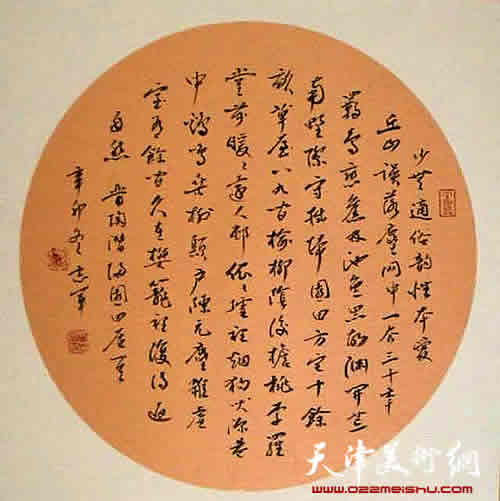 少無適俗韵性本愛
丘山誤落塵网中一去三十年
羈鳥戀舊林池魚思故淵開荒
南野際守拙歸園田方宅十餘
畝草屋八九間榆柳蔭後檐桃李羅
堂前暖暖遠人村依依墟裡烟狗吠深巷
中鷄鳴桑樹顛户庭无塵雜虛
室有餘閒久在樊籠裡復得返
自然 晋陶潜歸園田居
辛卯冬志軍
天津美術網
www.022meishu.com